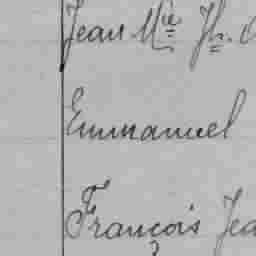 Jean Mie Jh.
Emmanuel
François Jea